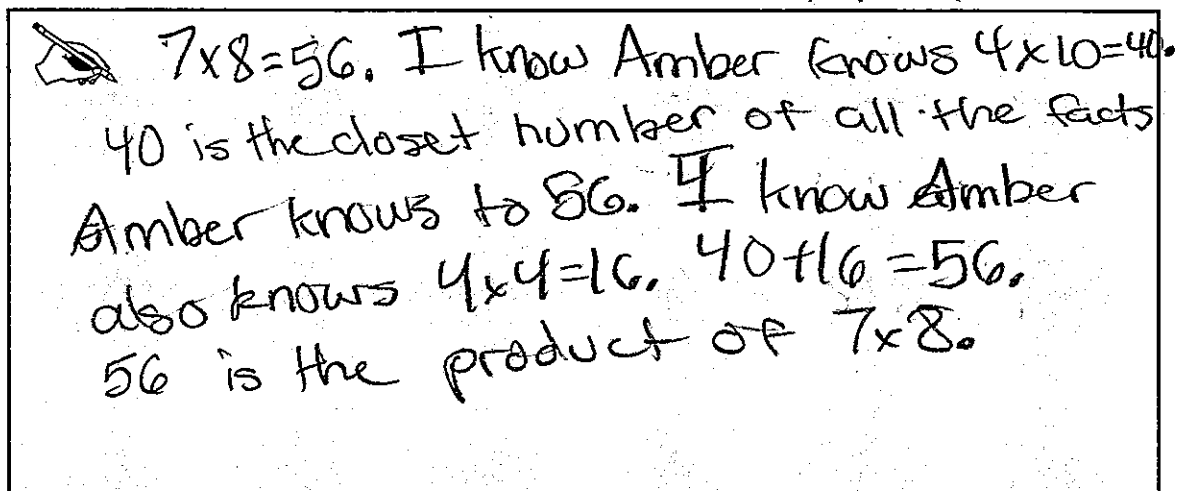 7x8=56. I know Amber knows 4x10=40.
40 is the closet number of all the facts
Amber knows to 56. I know Amber
also knows 4x4=16. 40+16=56.
56 is the product of 7x8.